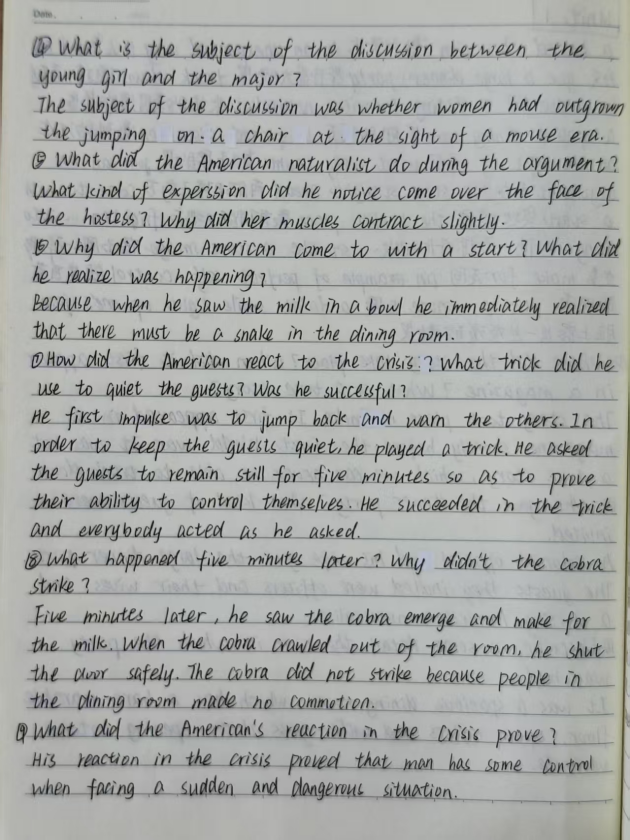 Date.
④ What is the subject of the discussion between the
young girl and the major?
The subject of the discussion was whether women had outgrown
the jumping on. a chair at the sight of a mouse era.
⑤ What did the American naturalist do during the argument?
What kind of experssion did he notice come over the face of
the hostess? Why did her muscles contract slightly.
⑥ Why did the American come to with a start? What did
he realize was happening?
Because when he saw the milk in a bowl he immediately realized
that there must be a snake in the dining room.
⑦ How did the American react to the crisis? What trick did he
use to quiet the guests? Was he successful?
He first impulse was to jump back and warn the others. In
order to keep the guests quiet, he played a trick. He asked
the guests to remain still for five minutes so as to prove
their ability to control themselves. He succeeded in the trick
and everybody acted as he asked.
⑧ What happened five minutes later? Why didn't the cobra
strike?
Five minutes later, he saw the cobra emerge and make for
the milk. When the cobra crawled out of the room, he shut
the door safely. The cobra did not strike because people in
the dining room made no commotion.
⑨ What did the American's reaction in the crisis prove?
His reaction in the crisis proved that man has some control
when facing a sudden and dangerous situation.